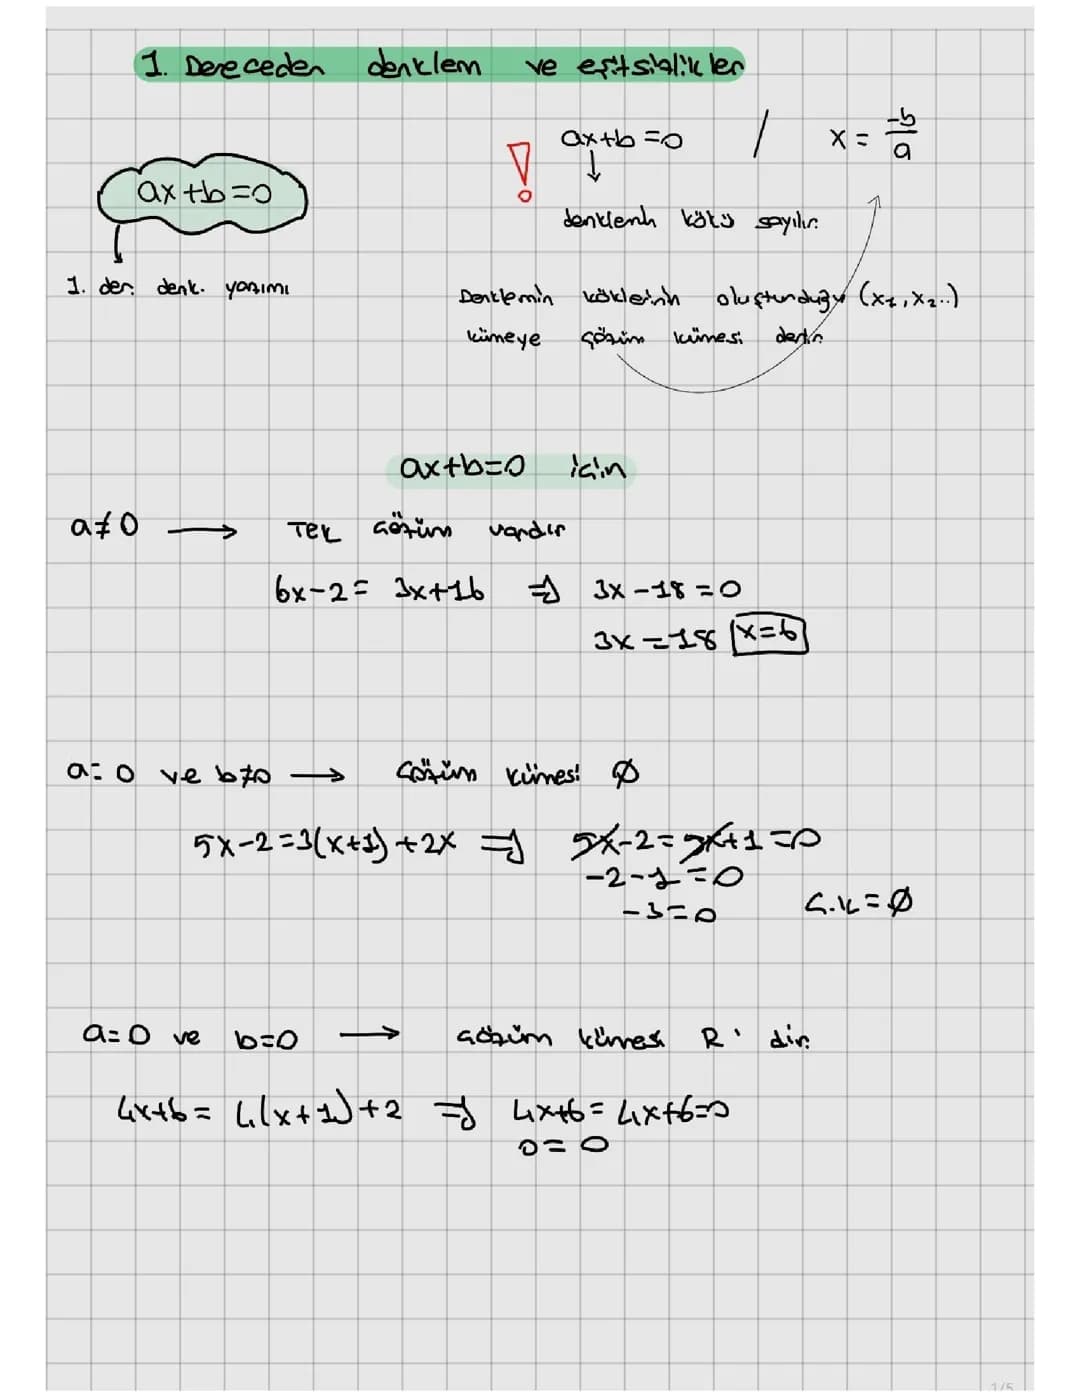 1. Dereceden denklem ve eşitsizlikler
ax+b=0
1. der. denk. yazımı
! ax+b=0 / x = -b/a
↓
denklemin kökü sayılır.
Denklemin köklerinin oluşturduğu (x1, x2..)
kümeye çözüm kümesi denir.
ax+b=0 için
a≠0 → Tek çözüm vardır
6x-2= 3x+16 ⇒ 3x-18=0
3x=18 x=6
a=0 ve b≠0 → Çözüm kümesi Ø
5x-2=3(x+1)+2x ⇒ 5x-2=5x+1=0
-2-1=0
-3=0 Ç.K=Ø
a=0 ve b=0 → çözüm kümesi R' dir.
4x+6= 4(x+1)+2 ⇒ 4x+6=4x+6=0
0=0
1/5